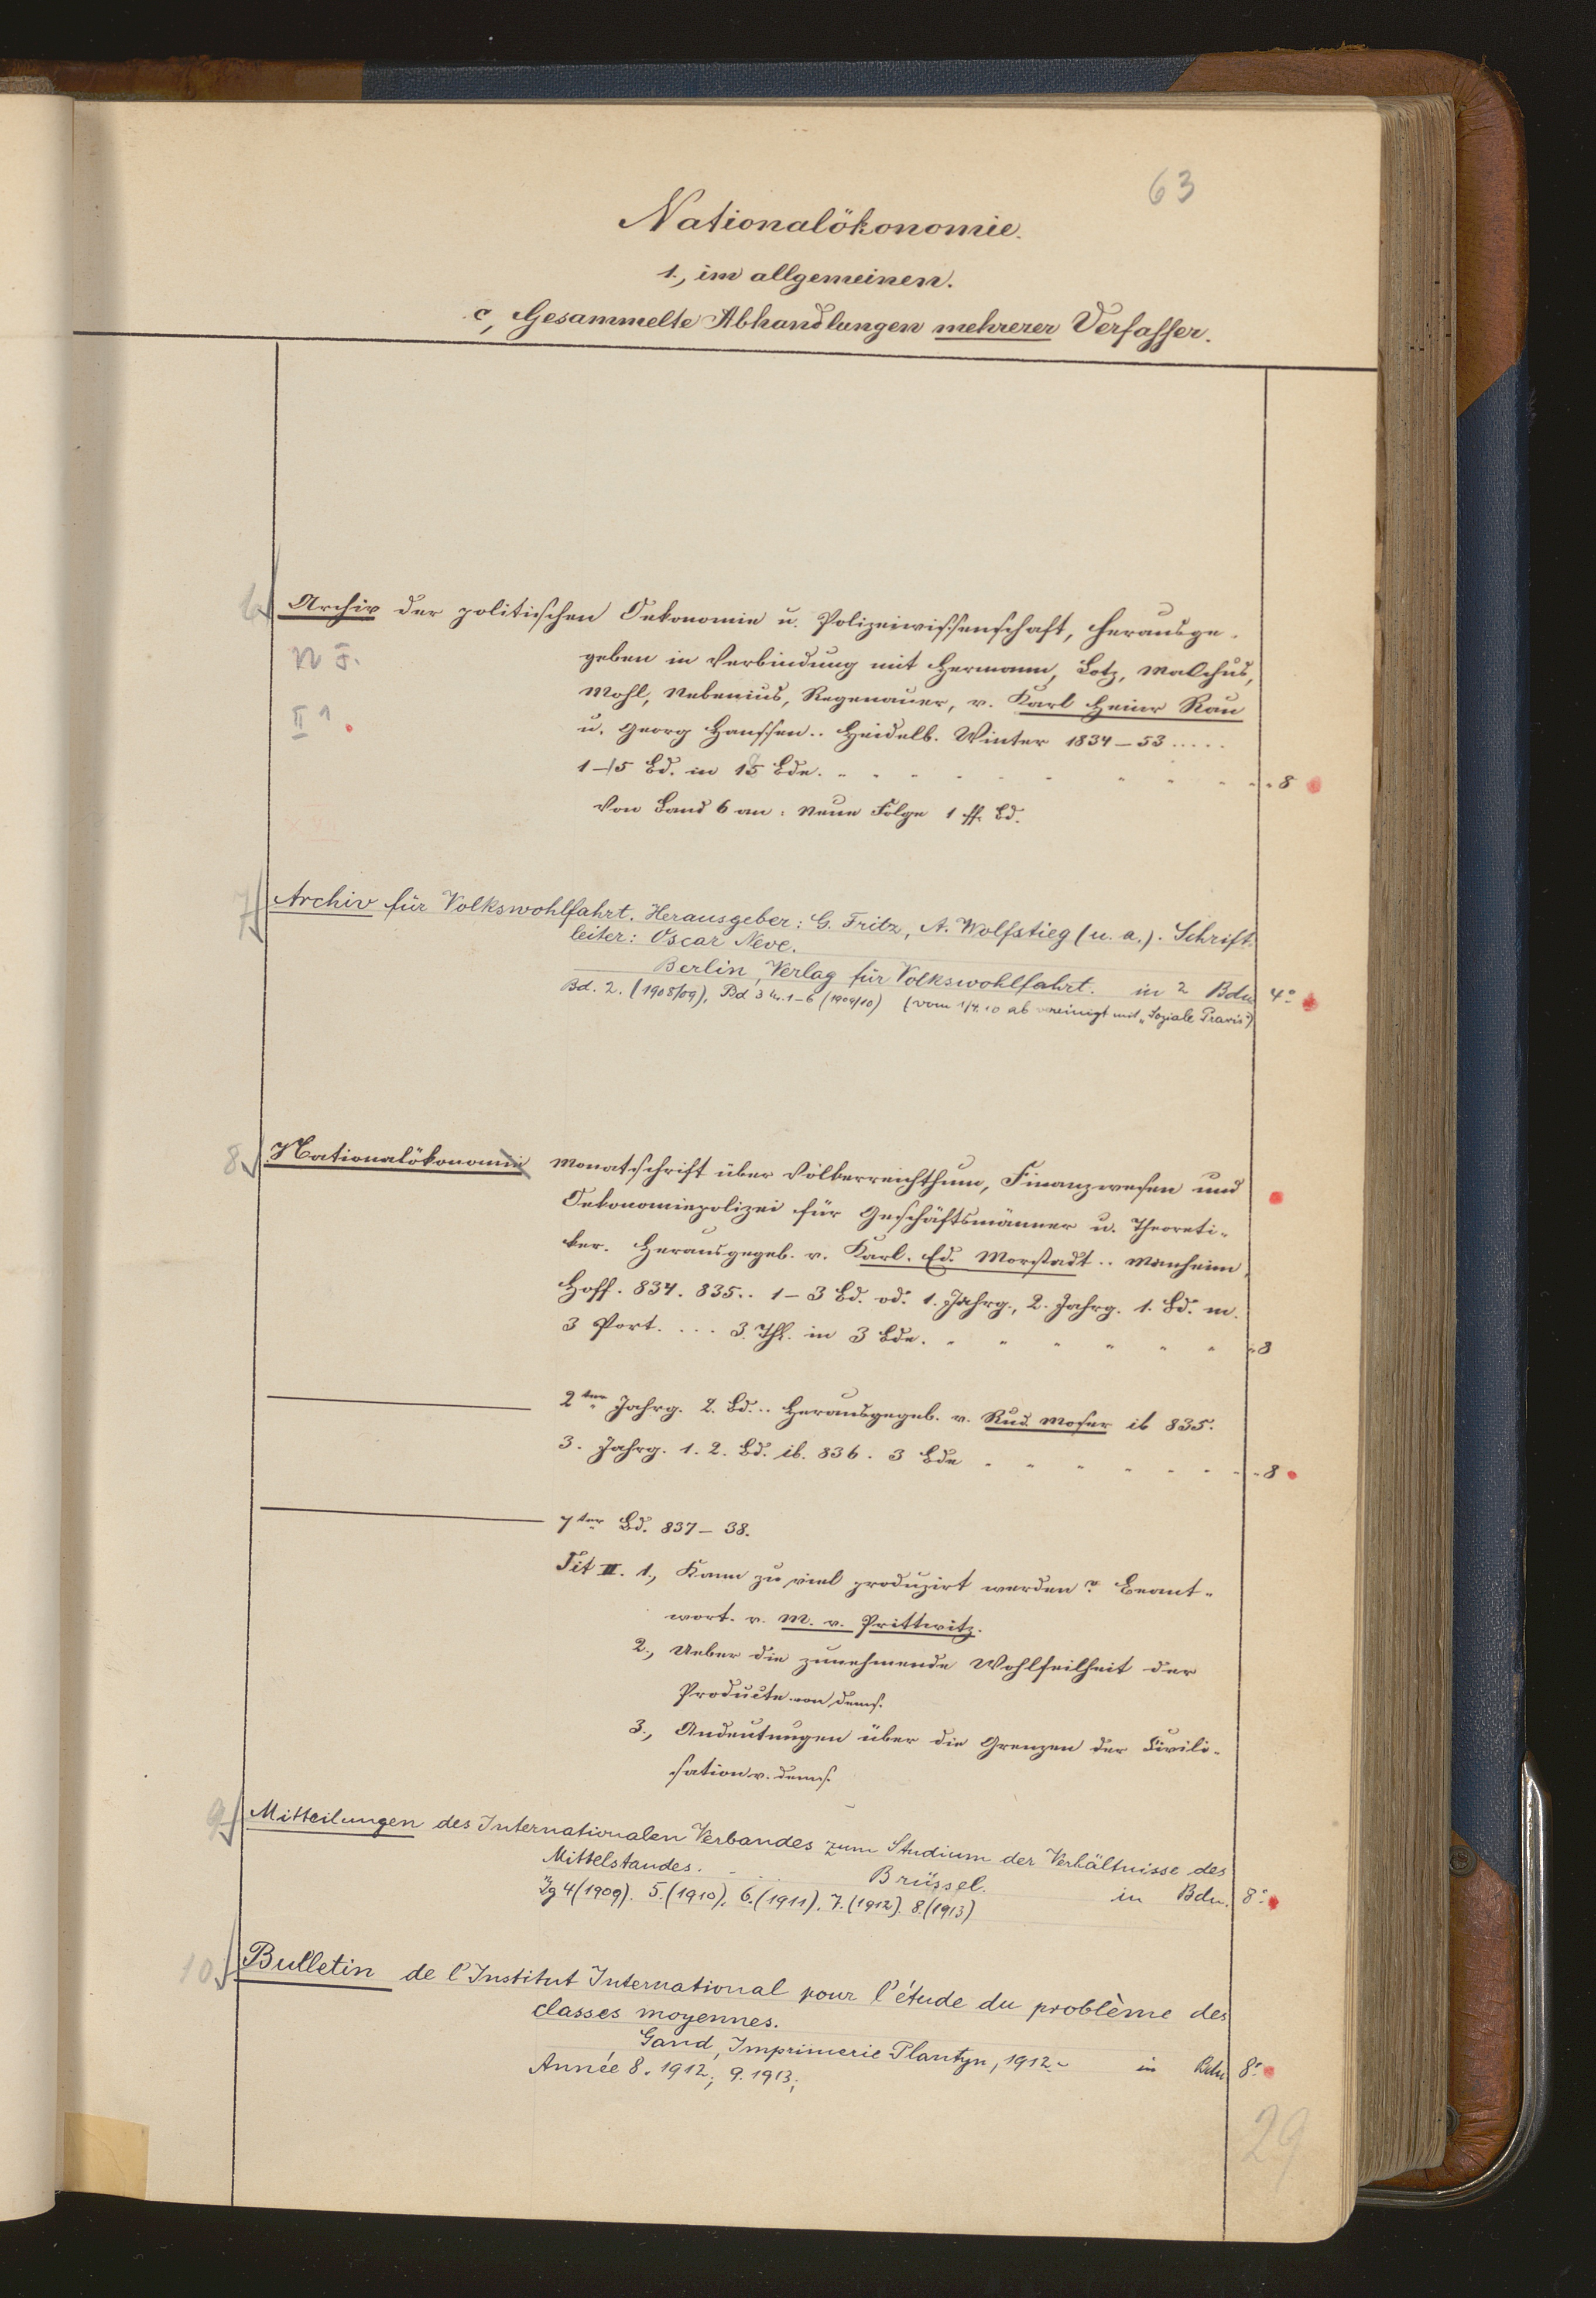 63
Nationalökonomie.
1., im allgemeinen.
c, Gesammelte Abhandlungen mehrerer Verfasser.
6 Archiv der politischen Oekonomie u. Polizeiwissenschaft, herausge-
N F. geben in Verbindung mit Hermann, Lotz, Malchus,
Mohl, Nebenius, Regenauer, v. Karl Heinr Rau
II 1 u. Georg Hanssen.. Heidelb. Winter 1834-53.....
1-15 Bd. in 15 Bde. 8
Von Band 6 an: Neue Folge 1 ff. Bd.
7 Archiv für Volkswohlfahrt. Herausgeber: G. Fritz, A. Wolfstieg (u. a.). Schrift-
leiter: Oscar Neve.
Berlin, Verlag für Volkswohlfahrt. in 2 Bdn 4°
Bd. 2. (1908/09), Bd 3 H. 1-6 (1909/10) (vom 1/4. 10 ab vereinigt mit „Soziale Praxis“)
8 Nationalökonom Monatschrift über Völkerreichthum, Finanzwesen und
Oekonomiepolizei für Geschäftsmänner u. Theoreti-
ker. Herausgegeb. v. Karl. Ed. Morstadt.. Manheim,
Hoff. 834. 835.. 1-3 Bd. od. 1. Jahrg., 2. Jahrg. 1. Bd. m.
3 Port. ... 3. Thl. in 3 Bde. 8
2ter Jahrg. 2. Bd... Herausgegeb. v. Rud. Moser ib 835.
3. Jahrg. 1. 2. Bd. ib. 836. 3 Bde 8
7ter Bd. 837-38.
Tit II. 1., Kann zu viel produzirt werden? Beant-
wort. v. M. v. Prittwitz.
2., Ueber die zunehmende Wohlfeilheit der
Producte von dems.
3., Andeutungen über die Grenzen der Civili-
sation v. dems.
9 Mitteilungen des Internationalen Verbandes zum Studium der Verhältnisse des
Mittelstandes. Brüssel. in Bdn. 8°
Jg 4 (1909). 5. (1910). 6. (1911). 7. (1912). 8. (1913)
10 Bulletin de l'Institut International pour l'étude du problème des
classes moyennes.
Gand, Imprimerie Plantyn, 1912- in Bdn 8°
Année 8. 1912; 9. 1913;
29